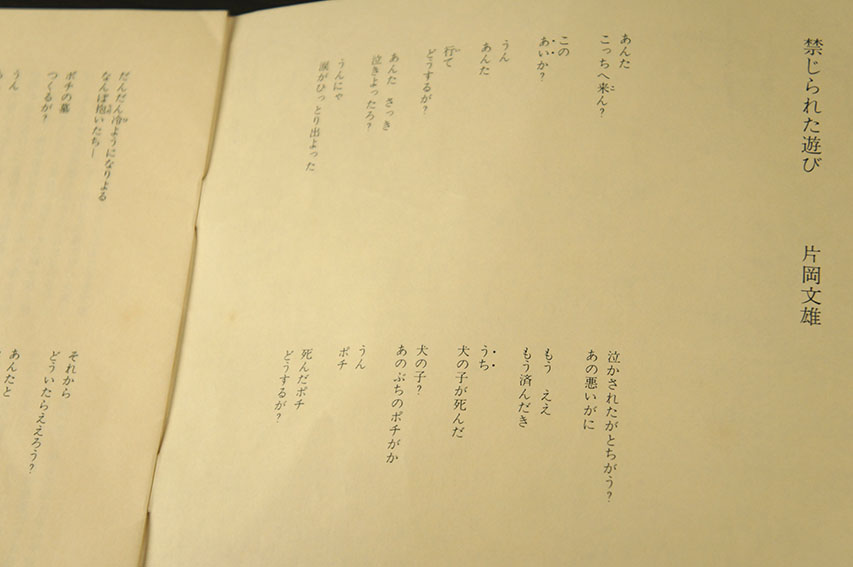 禁じられた遊び　片岡文雄
あんた
こっちへ来ん?
この
あいか?
うん
あんた
行て
どうするが?
あんた　さっき
泣きよったろ?
うんにゃ
涙がひっとり出よった
泣かされたがとちがう?
あの悪いがに
もう　ええ
もう済んだき
うち
犬の子が死んだ
犬の子?
あのぶちのポチがか
うん
ポチ
死んだポチ
どうするが?
だんだん冷ようになりよる
なんぼ抱いたち―
ポチの墓
つくるが?
うん
それから
どういたらええろう?
あんたと